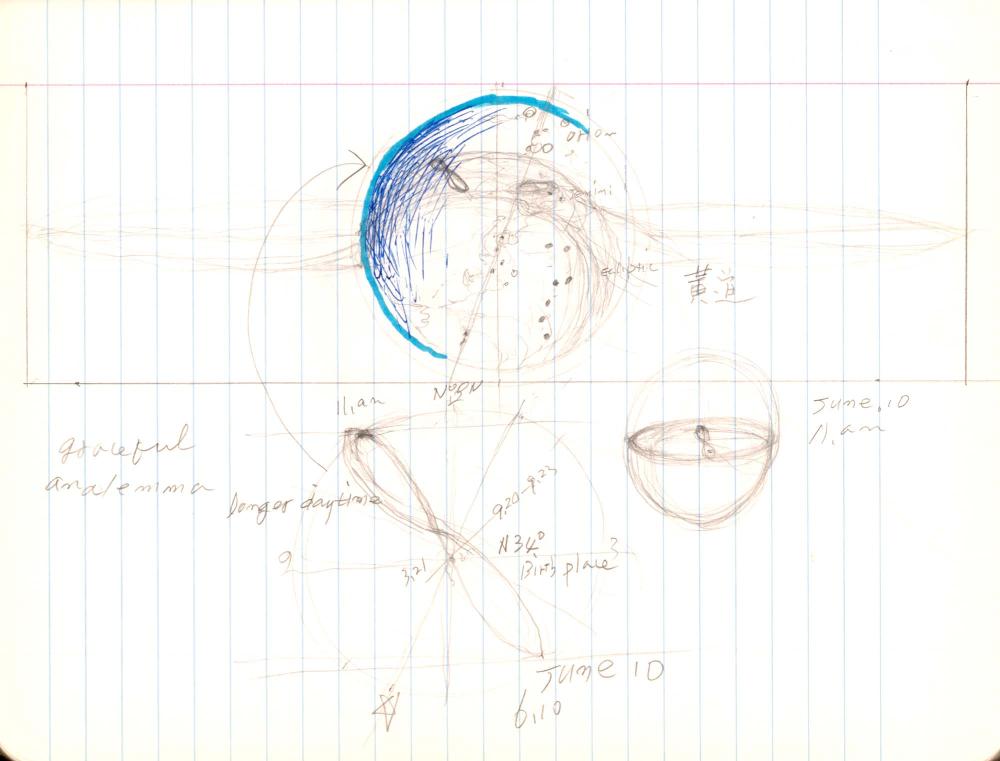 Orion
Gemini
ecliptic
黄道
NOON
11,am
June.10
11,am
graceful
analemma
longer daytime
9.20-9.23
N34°
Birth place
9
3
3.21
June 10
6,10